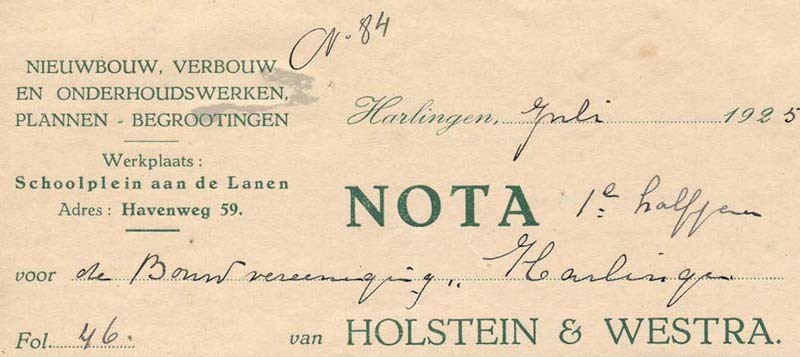 N. 84
NIEUWBOUW, VERBOUW
EN ONDERHOUDSWERKEN,
PLANNEN - BEGROOTINGEN
Werkplaats :
Schoolplein aan de Lanen
Adres : Havenweg 59.
Harlingen, Juli 1925
NOTA 1e halfjaar
voor de Bouwvereeniging „Harlingen
Fol. 46. van HOLSTEIN & WESTRA.